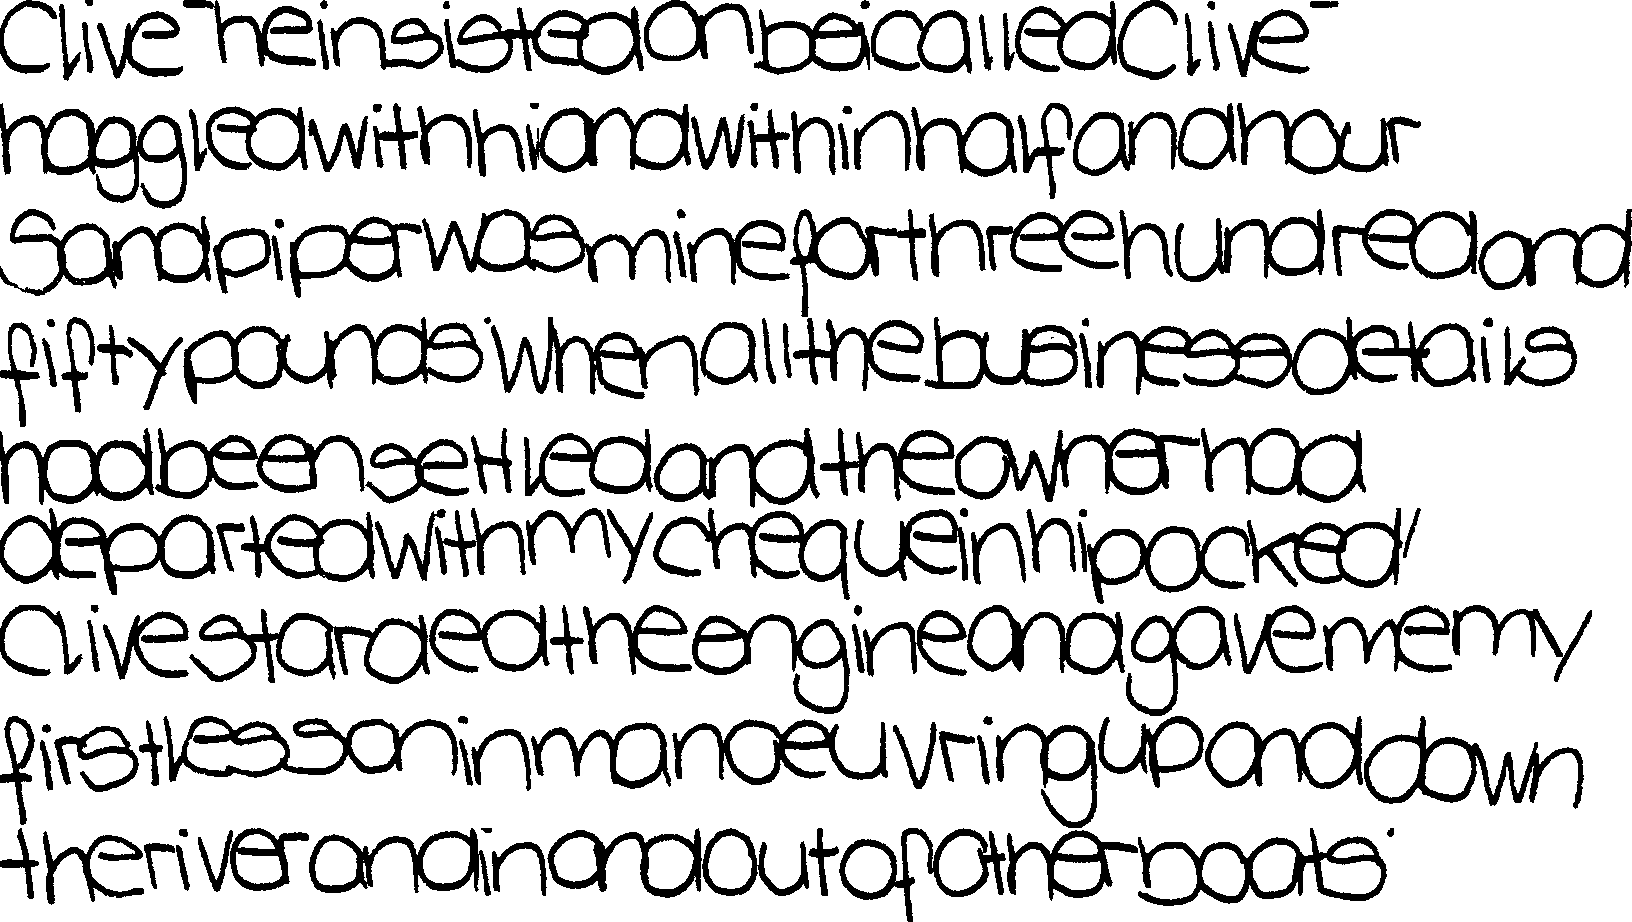 Clive - he insisted on bei called Clive -
haggled with hi and within half and hour
Sandpiper was mine for three hundred and
fifty pounds. When all the business details
had been settled and the owner had
departed with my cheque in hi pocked,
Clive starded the engine and gave me my
first lesson in manoeuvring up and down
the river and in and out of other boats.